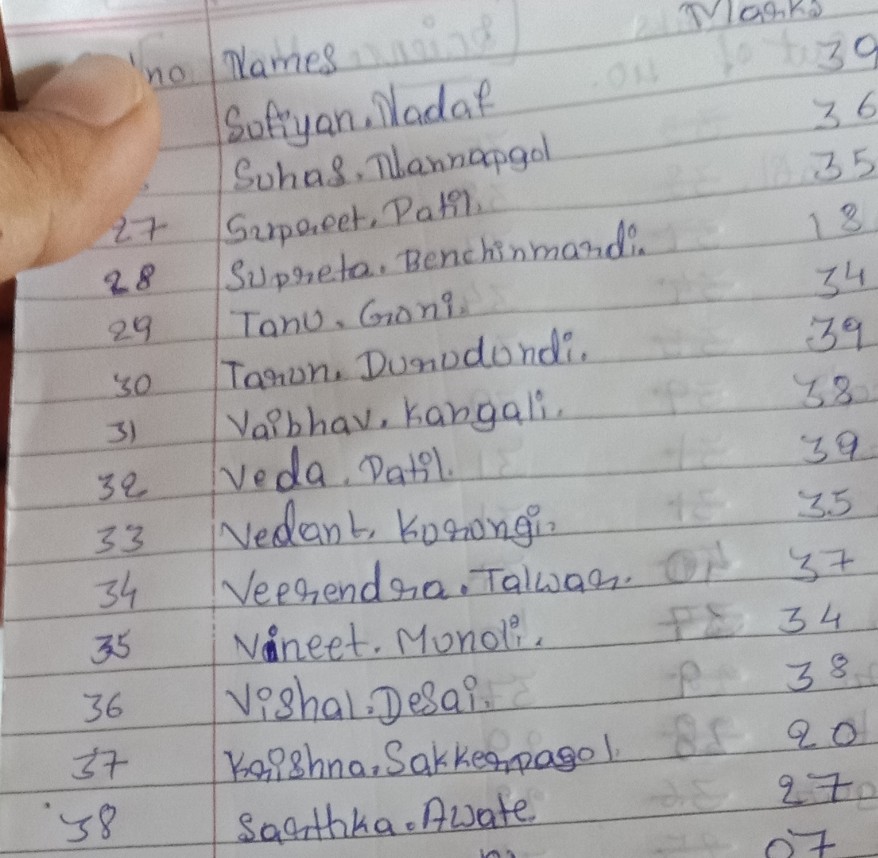 no Names Marks
Sofiyan. Nadaf 39
Suhas. Nannapgol 36
27 Patil. 35
28 Supreta. Benchinmardi. 18
29 Tanu. Goni. 34
30 Tarun. Durudundi. 39
31 Vaibhav. Kangali. 38
32 Veda. Patil. 39
33 Vedant. Korongi. 35
34 Veerendra. Talwar. 37
35 Vineet. Monoli. 34
36 Vishal. Desai. 38
37 Krishna. Sakkerpagol. 20
38 Sarthka. Awate 27
07